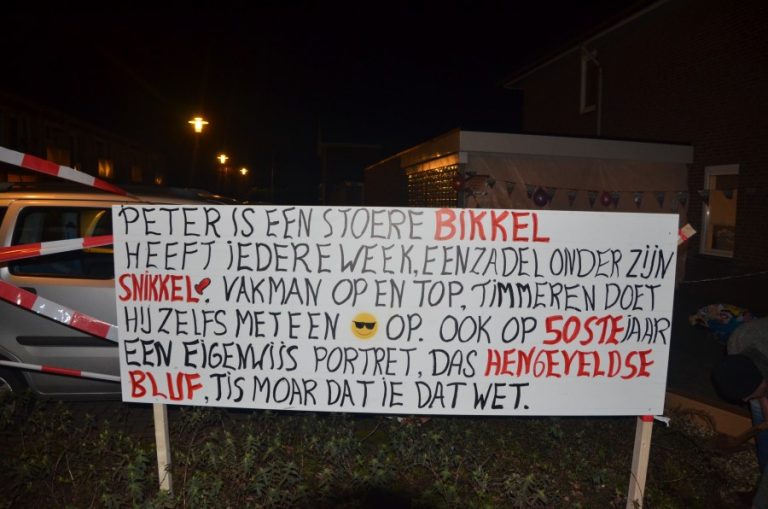 PETER IS EEN STOERE BIKKEL
HEEFT IEDERE WEEK, EEN ZADEL ONDER ZIJN
SNIKKEL. VAKMAN OP EN TOP, TIMMEREN DOET
HIJ ZELFS MET EEN 😎 OP. OOK OP 50STE JAAR
EEN EIGENWIJS PORTRET, DAS HENGEVELDSE
BLUF, TIS MOAR DAT IE DAT WET.